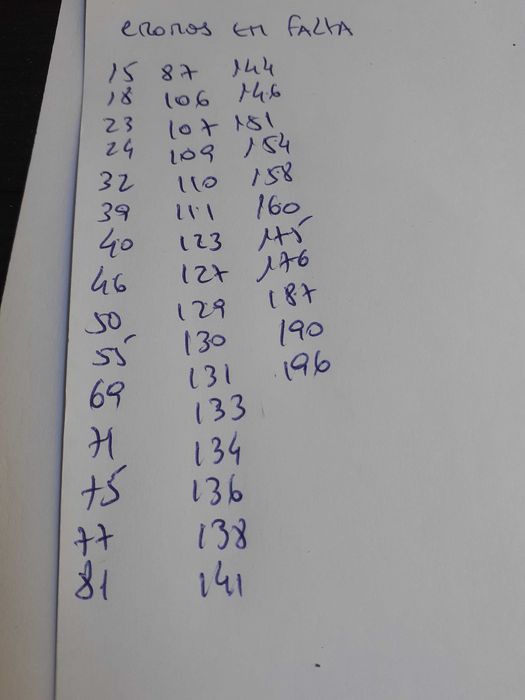 CROMOS EM FALTA
15 87 144
18 106 146
23 107 151
24 109 154
32 110 158
39 111 160
40 123 175
46 127 176
50 129 187
55 130 190
69 131 196
71 133
75 134
77 136
81 138
141